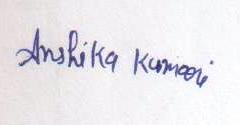 Anshika Kumari